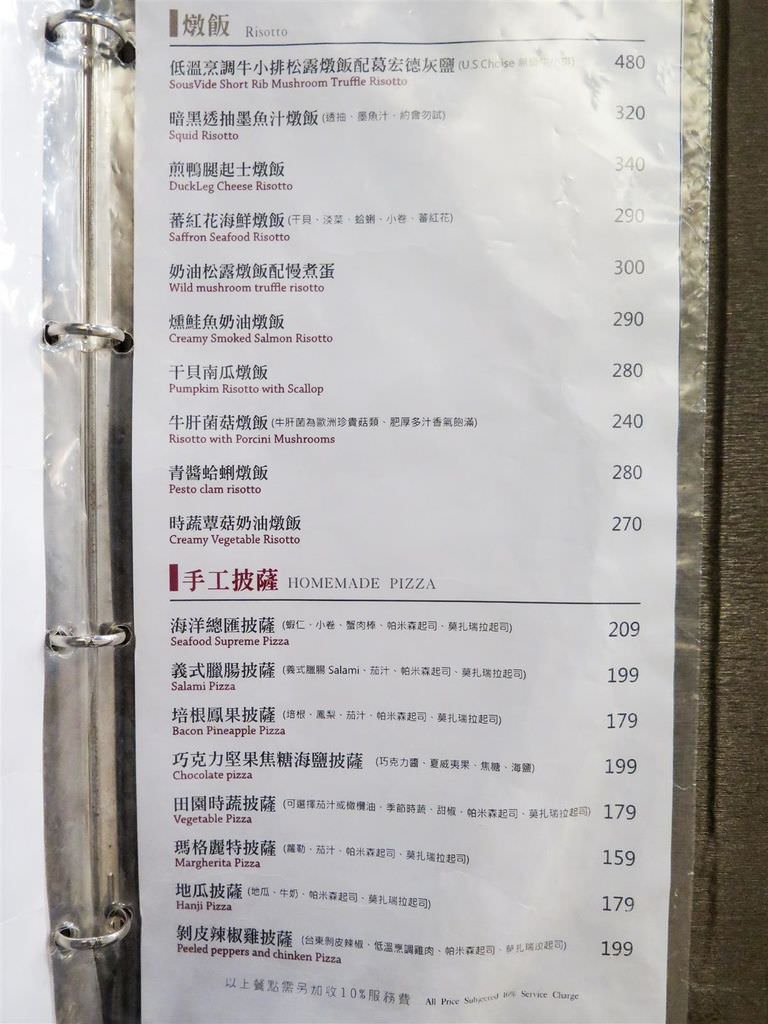 燉飯 Risotto
低溫烹調牛小排松露燉飯配葛宏德灰鹽 (U.S Choise 無骨牛小排) 480
SousVide Short Rib Mushroom Truffle Risotto
暗黑透抽墨魚汁燉飯 (透抽、墨魚汁、約會勿試) 320
Squid Risotto
煎鴨腿起士燉飯 340
DuckLeg Cheese Risotto
蕃紅花海鮮燉飯 (干貝、淡菜、蛤蜊、小卷、蕃紅花) 290
Saffron Seafood Risotto
奶油松露燉飯配慢煮蛋 300
Wild mushroom truffle risotto
燻鮭魚奶油燉飯 290
Creamy Smoked Salmon Risotto
干貝南瓜燉飯 280
Pumpkim Risotto with Scallop
牛肝菌菇燉飯 (牛肝菌為歐洲珍貴菇類、肥厚多汁香氣飽滿) 240
Risotto with Porcini Mushrooms
青醬蛤蜊燉飯 280
Pesto clam risotto
時蔬蕈菇奶油燉飯 270
Creamy Vegetable Risotto
手工披薩 HOMEMADE PIZZA
海洋總匯披薩 (蝦仁、小卷、蟹肉棒、帕米森起司、莫扎瑞拉起司) 209
Seafood Supreme Pizza
義式臘腸披薩 (義式臘腸 Salami、茄汁、帕米森起司、莫扎瑞拉起司) 199
Salami Pizza
培根鳳果披薩 (培根、鳳梨、茄汁、帕米森起司、莫扎瑞拉起司) 179
Bacon Pineapple Pizza
巧克力堅果焦糖海鹽披薩 (巧克力醬、夏威夷果、焦糖、海鹽) 199
Chocolate pizza
田園時蔬披薩 (可選擇茄汁或橄欖油、季節時蔬、甜椒、帕米森起司、莫扎瑞拉起司) 179
Vegetable Pizza
瑪格麗特披薩 (蘿勒、茄汁、帕米森起司、莫扎瑞拉起司) 159
Margherita Pizza
地瓜披薩 (地瓜、牛奶、帕米森起司、莫扎瑞拉起司) 179
Hanji Pizza
剝皮辣椒雞披薩 (台東剝皮辣椒、低溫烹調雞肉、帕米森起司、莫扎瑞拉起司) 199
Peeled peppers and chinken Pizza
以上餐點需另加收10%服務費 All Price Subjected 10% Service Charge